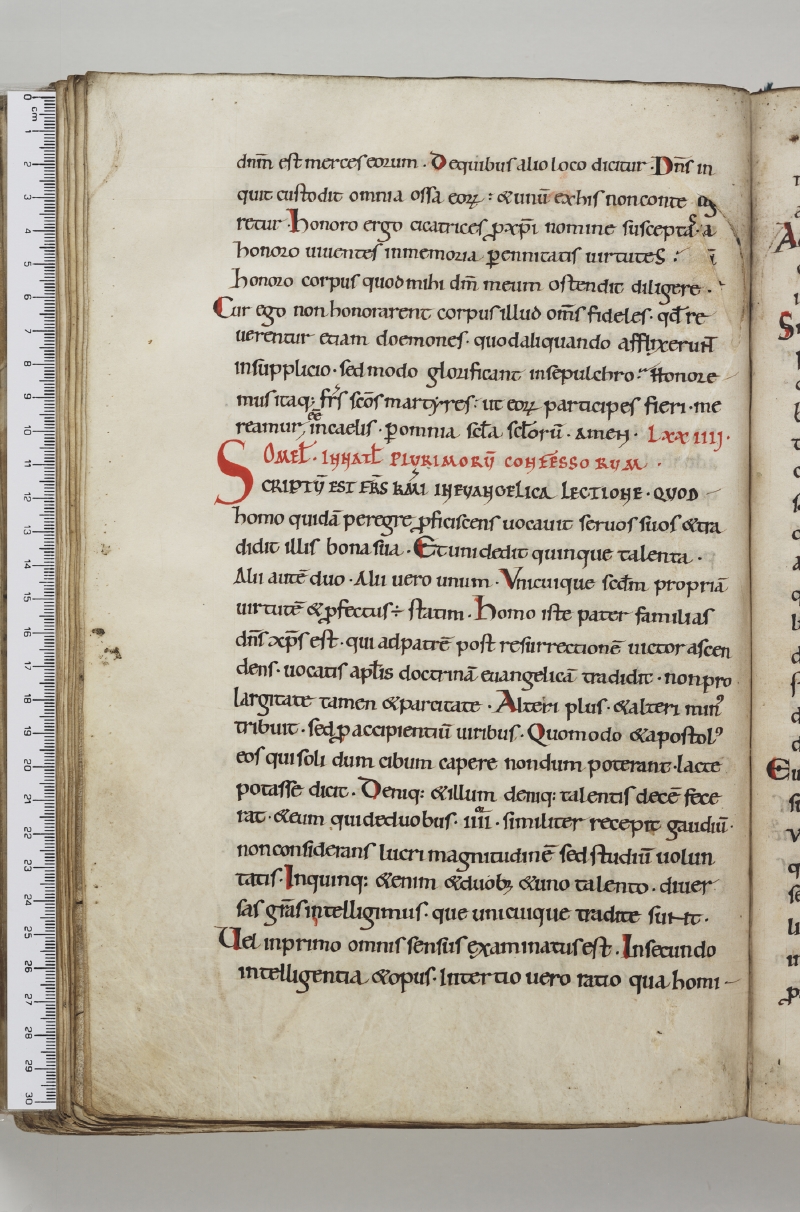 dnm̄ est merces eorum . De quibus alio loco dicitur . Dn̄s in
quit custodit omnia ossa eoꝝ : & unū ex his non conte
retur . Honoro ergo cicatrices ꝓ xp̄i nomine suscepta a
honoro uiuentes in memoria ꝑennitatis uirtutes : ī
honoro corpus quod mihi dm̄ meum ostendit diligere .
Cur ego non honorarent corpus illud om̄s fideles . qd̄ re
uerentur etiam doemones . quod aliquando afflixerunt
in supplicio . sed modo glorificant in sepulchro . Honore
mus itaq; fr̄s sc̄os martyres : ut eoꝝ participes fieri . me
reamur ; ee in caelis . ꝑ omnia scl̄a scl̄orū . amen . LXXIIII .
OMEL̄ . IN NATL̄ PLURIMORŪ CONFESSORUM .
SCRIPTŪ EST FR̄S KM̄I IN EVANGELICA LECTIONE . QUOD
homo quidā peregre ꝓficiscens uocauit seruos suos & tra
didit illis bona sua . Et uni dedit quinque talenta .
Alii autē duo . Alii uero unum . Vnicuique secdm̄ propriā
uirtutē & ꝓfectus ÷ statim . Homo iste pater familias
dn̄s xp̄s est . qui ad patrē post resurrectionē uictor ascen
dens . uocatis apl̄is doctrinā euangelicā tradidit . non pro
largitate tamen & parcitate . Alteri plus . & alteri minꝰ
tribuit . sed ꝓ accipientiū uiribus . Quomodo & apostolꝰ
eos qui soli dum cibum capere nondum poterant . lacte
potasse dicit . Deniq: & illum deniq: talentis decē fece
rat . & eum qui de duobus . iiii . similiter recepit gaudiū .
non considerans lucri magnitudinē sed studiū uolun
tatis . In quinq: & enim & duobꝫ & uno talento . diuer
sas gr̄as intelligimus . que unicuique tradite sunt .
Uel in primo omnis sensus examinatus est . In secundo
intelligentia & opus . In tertio uero ratio qua homi
0 cm 1 2 3 4 5 6 7 8 9 10 11 12 13 14 15 16 17 18 19 20 21 22 23 24 25 26 27 28 29 30